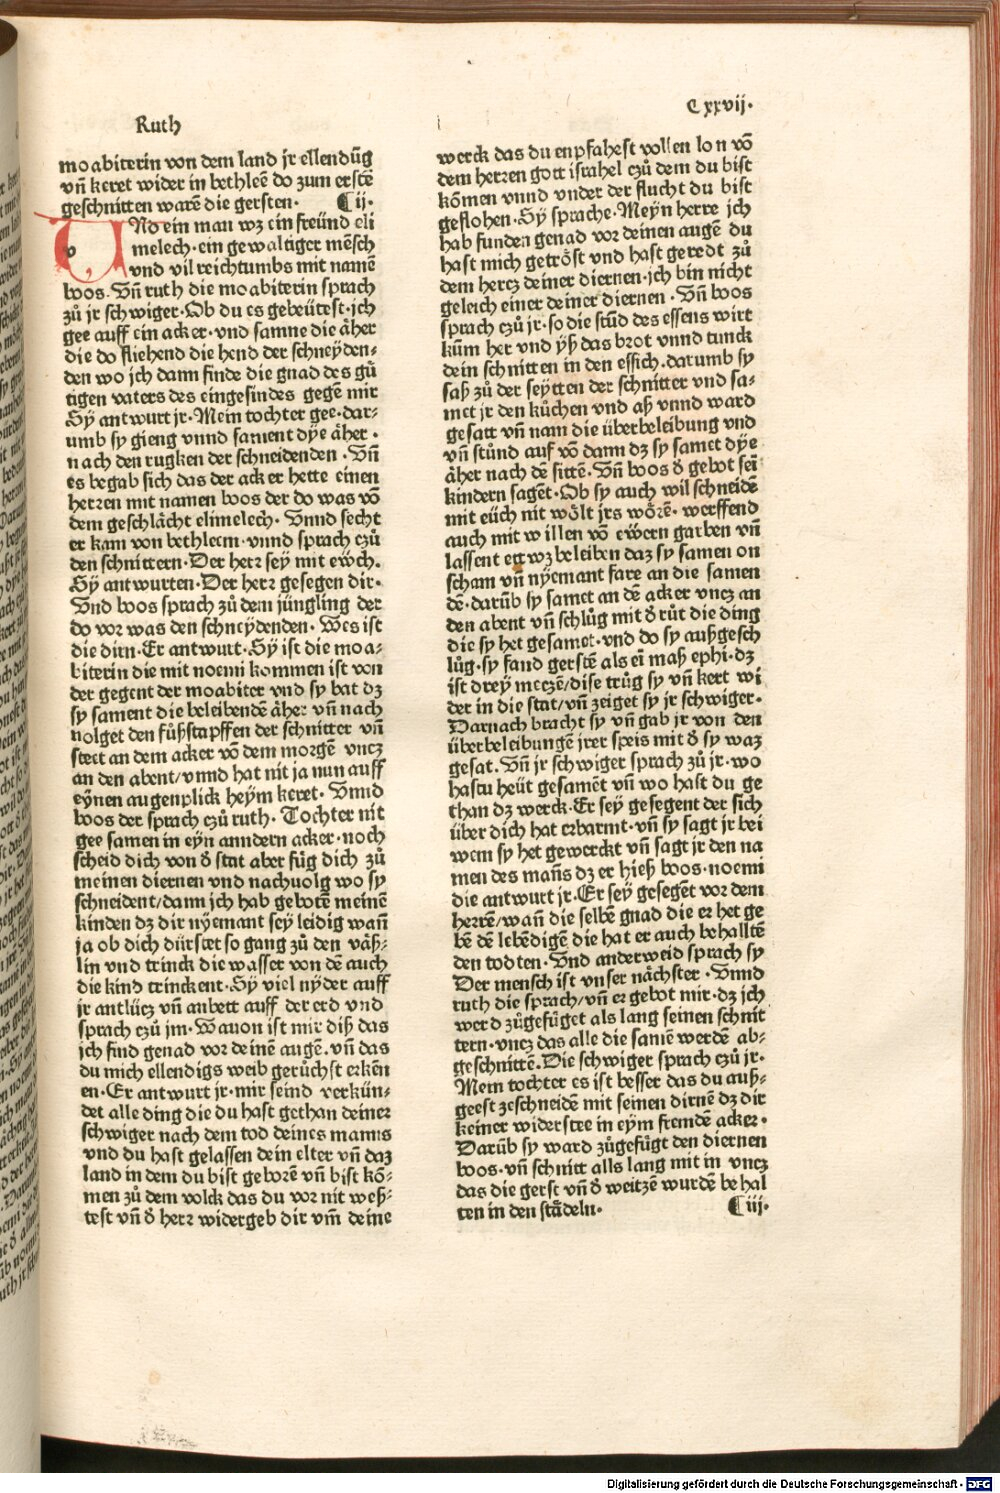 Ruth
C xxvij·
moabiterin von dem land jr ellendũg
vñ keret wider in bethleē do zum erstē
geschnitten warē die gersten· ¶ ij·
UNd ein man wz ein freünd eli
melech·ein gewaltiger mēsch
vnd vil reichtumbs mit namē
boos·Vñ ruth die moabiterin sprach
zů jr schwiger·Ob du es gebeütest·jch
gee auff ein acker·vnd samne die äher
die do fliehend die hend der schneyden⸗
den wo jch dann finde die gnad des gů
tigen vaters des eingesindes gegē mir
Sy antwurt jr·Mein tochter gee·dar⸗
umb sy gieng vnnd sament dÿe äher·
nach den rugken der schneidenden·Vñ
es begab sich das der acker hette einen
herren mit namen boos der do was vō
dem geschlächt elimelech·Vnnd secht
er kam von bethleem·vnnd sprach czů
den schnittern·Der herr sey mit eẅch.
Sy antwurten·Der herr gesegen dir·
Vnd boos sprach zů dem jüngling der
do vor was den schneydenden·Wes ist
die dirn·Er antwurt·Sy ist die moa⸗
biterin die mit noemi kommen ist von
der gegent der moabiter vnd sy bat dz
sy sament die beleibendē äher vñ nach
volget den fůßstapffen der schnitter vñ
steet an dem acker vō dem morgē vncz
an den abent/vnnd hat nit ja nun auff
eÿnen augenplick heÿm keret·Vnnd
boos der sprach czů ruth·Tochter nit
gee samen in eyn anndern acker·noch
scheid dich von d̄ stat aber fůg dich zů
meinen diernen vnd nachuolg wo sy
schneident/dann jch hab gebotē meinē
kinden dz dir nÿemant sey leidig wañ
ja ob dich dürstet so gang zů den väß⸗
lin vnd trinck die wasser von dē auch
die kind trinckent·Sy viel nÿder auff
jr antlücz vñ anbett auff der erd vnd
sprach czů jm·Wauon ist mir diß das
jch find genad vor deinē augē·vñ das
du mich ellendigs weib gerůchst erken
en·Er antwurt jr·mir seind verkün⸗
det alle ding die du hast gethan deiner
schwiger nach dem tod deines manns
vnd du hast gelassen dein elter vñ daz
land in dem du bist geborē vñ bist kō⸗
men zů dem volck das du vor nit weß⸗
test vñ d̄ herr widergeb dir vm̄ deine
werck das du enpfahest vollen lon vō
dem herren gott israhel czů dem du bist
kōmen vnnd vnder der flucht du bist
geflohen·Sÿ sprache·Meÿn herre jch
hab funden genad vor deinen augē du
hast mich getröst vnd hast geredt zů
dem hercz deiner diernen·jch bin nicht
geleich einer deiner diernen·Vñ boos
sprach czů jr·so die stūd des essens wirt
kūm her vnd yß das brot vnnd tunck
dein schnitten in den essich·darumb sy
saß zů der seÿtten der schnitter vnd sa⸗
met jr den kůchen vnd aß vnnd ward
gesatt vñ nam die überbeleibung vnd
vñ stůnd auf vō dann dz sy samet dÿe
äher nach dē sittē·Vñ boos d̄ gebot sei
kindern sagēt·Ob sy auch wil schneidē
mit eüch nit wölt jrs wörē·werffend
auch mit willen vō eẅern garben vñ
lassent ettwz beleiben daz sy samen on
scham vñ nÿemant fare an die samen
dē·darūb sy samet an dē acker vncz an
den abent vñ schlůg mit d̄ růt die ding
die sy het gesamet·vnd do sy außgesch
lůg·sy fand gerstē als ei maß ephi·dz
ist dreÿ meczē/dise trůg sy vñ kert wi
der in die stat/vñ zeiget sy jr schwiger·
Darnach bracht sy vñ gab jr von den
überbeleibungē jrer speis mit d̄ sy waz
gesat·Vñ jr schwiger sprach zů jr·wo
hastu heüt gesamēt vñ wo hast du ge
than dz werck·Er sey gesegent der sich
über dich hat erbarmt·vñ sy sagt jr bei
wem sy het gewerckt vñ sagt jr den na
men des mañs dz er hieß boos·noemi
die antwurt jr·Er sey gesegēt vor dem
herrē/wañ die selbē gnad die er het ge
bē dē lebēdigē die hat er auch behalltē
den todten·Vnd anderweid sprach sy
Der mensch ist vnser nächster·Vnnd
ruth die sprach/vñ er gebot mir·dz jch
werd zůgefůget als lang seinen schnit
tern·vncz das alle die samē werdē ab⸗
geschnittē·Die schwiger sprach czů jr·
Mein tochter es ist besser das du auß⸗
geest zeschneidē mit seinen dirnē dz dir
keiner widerstee in eÿm fremdē acker·
Darūb sy ward zůgefůgt den diernen
boos·vñ schnitt alls lang mit in vncz
das die gerst vñ d̄ weitzē wurdē behal
ten in den städeln· ¶ iij·
Digitalisierung gefördert durch die Deutsche Forschungsgemeinschaft · DFG